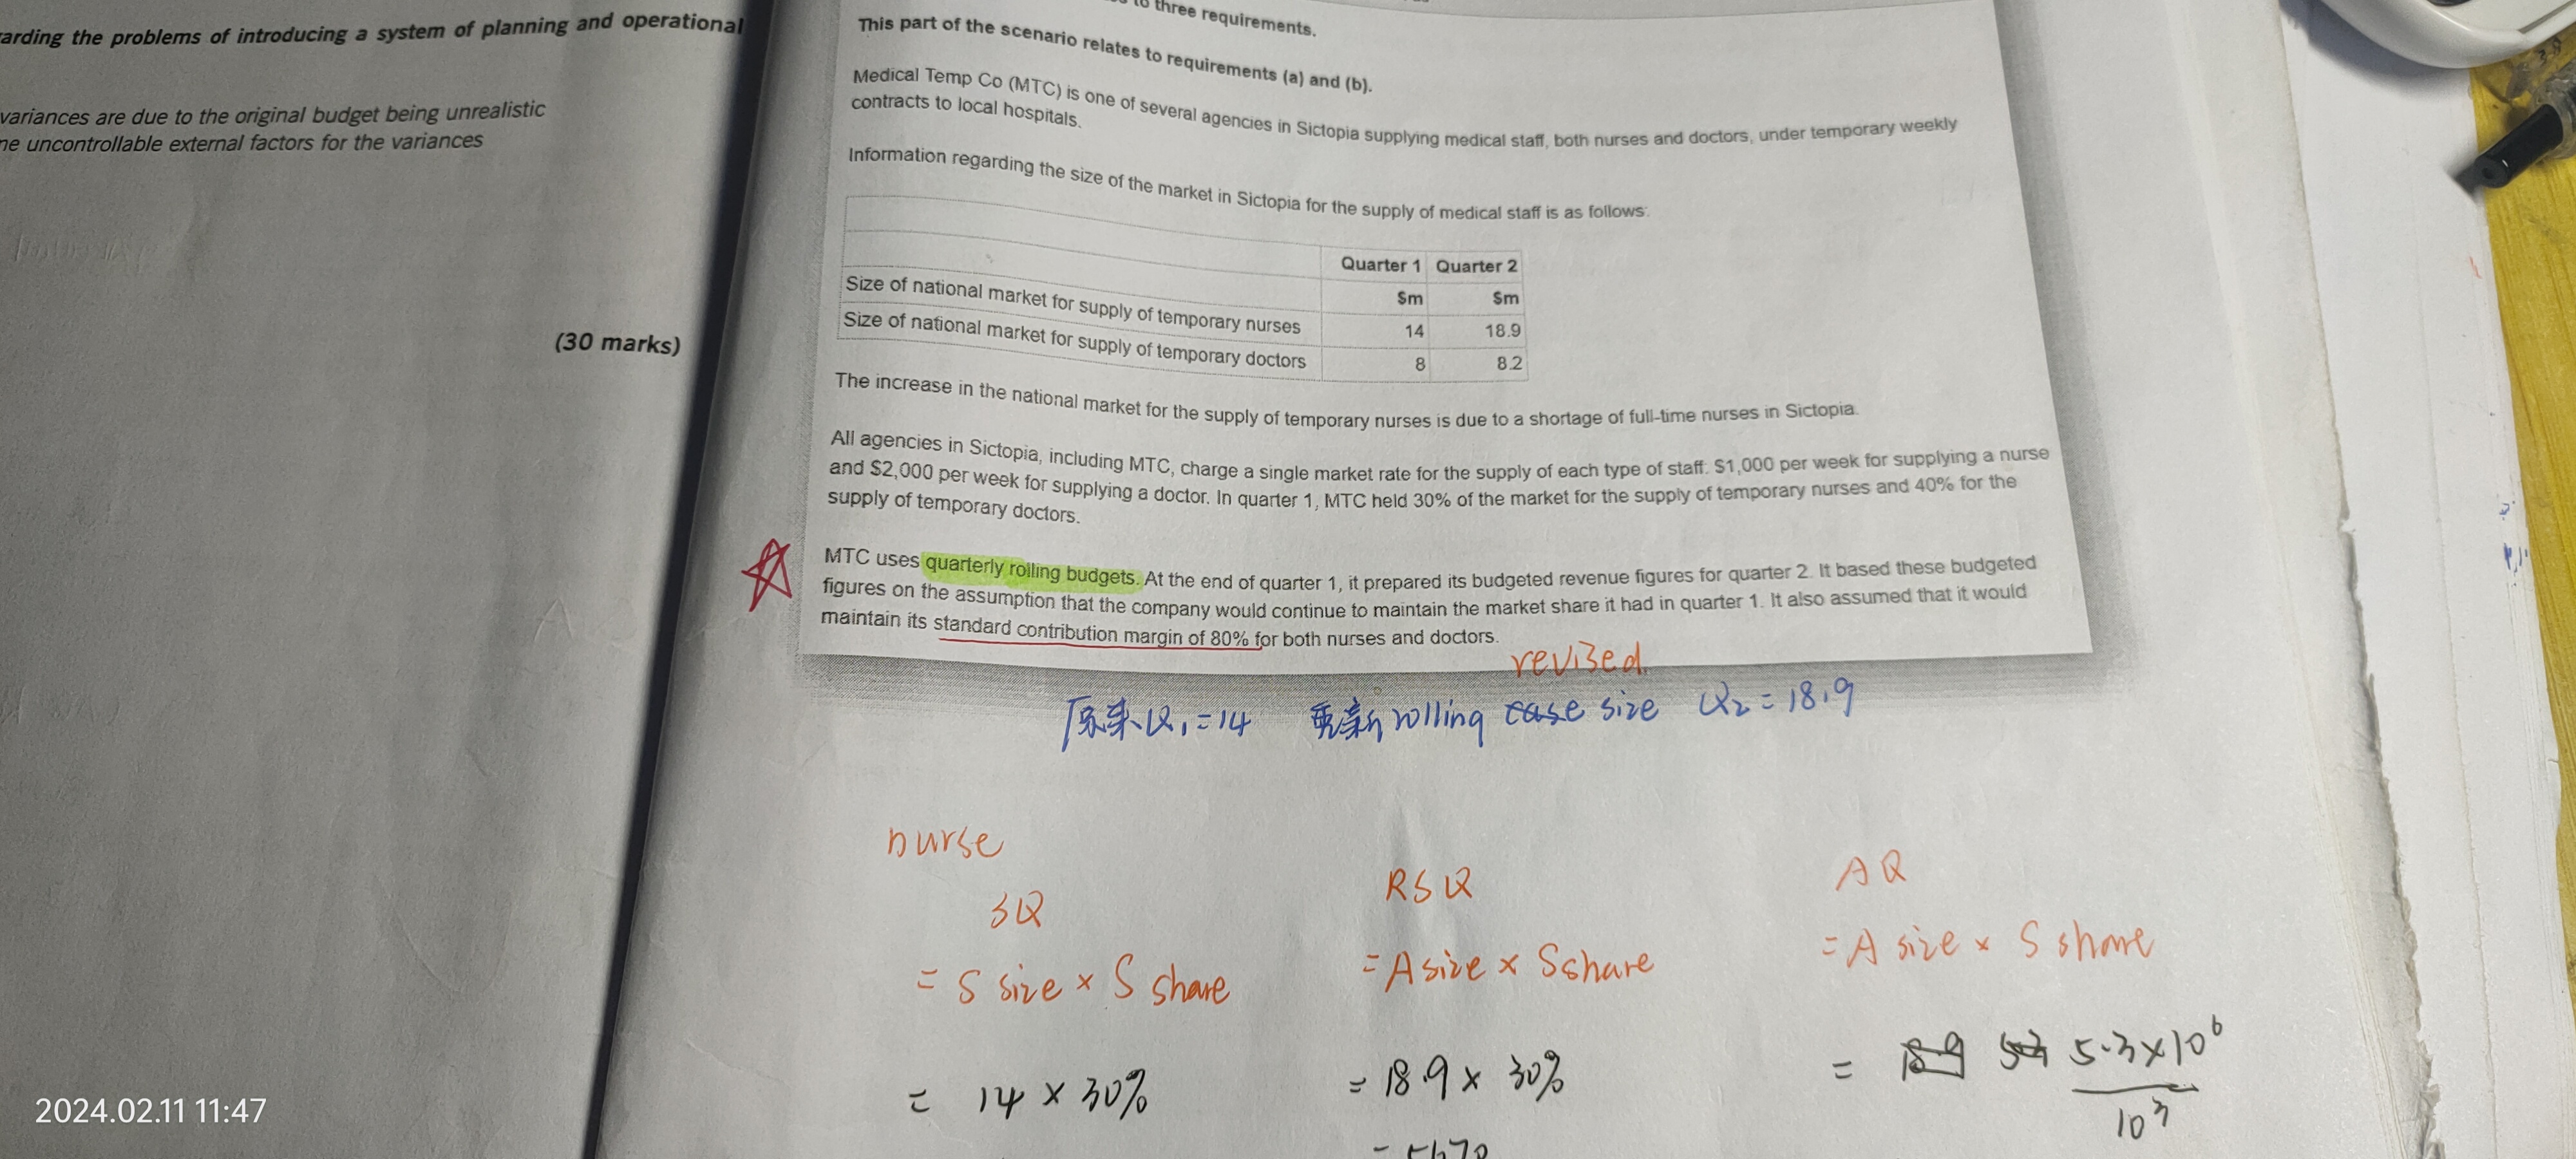 arding the problems of introducing a system of planning and operational
variances are due to the original budget being unrealistic
ne uncontrollable external factors for the variances
(30 marks)
to three requirements.
This part of the scenario relates to requirements (a) and (b).
Medical Temp Co (MTC) is one of several agencies in Sictopia supplying medical staff, both nurses and doctors, under temporary weekly
contracts to local hospitals.
Information regarding the size of the market in Sictopia for the supply of medical staff is as follows:
Quarter 1 Quarter 2
$m $m
Size of national market for supply of temporary nurses 14 18.9
Size of national market for supply of temporary doctors 8 8.2
The increase in the national market for the supply of temporary nurses is due to a shortage of full-time nurses in Sictopia.
All agencies in Sictopia, including MTC, charge a single market rate for the supply of each type of staff: $1,000 per week for supplying a nurse
and $2,000 per week for supplying a doctor. In quarter 1, MTC held 30% of the market for the supply of temporary nurses and 40% for the
supply of temporary doctors.
MTC uses quarterly rolling budgets. At the end of quarter 1, it prepared its budgeted revenue figures for quarter 2. It based these budgeted
figures on the assumption that the company would continue to maintain the market share it had in quarter 1. It also assumed that it would
maintain its standard contribution margin of 80% for both nurses and doctors.
revised
原来Q1=14 更新 rolling case size Q2=18.9
nurse
SQ RSQ AQ
= S size × S share = A size × S share = A size × S share
= 14 × 30% = 18.9 × 30% = 5.3×10⁶
10³
= 5670
2024.02.11 11:47